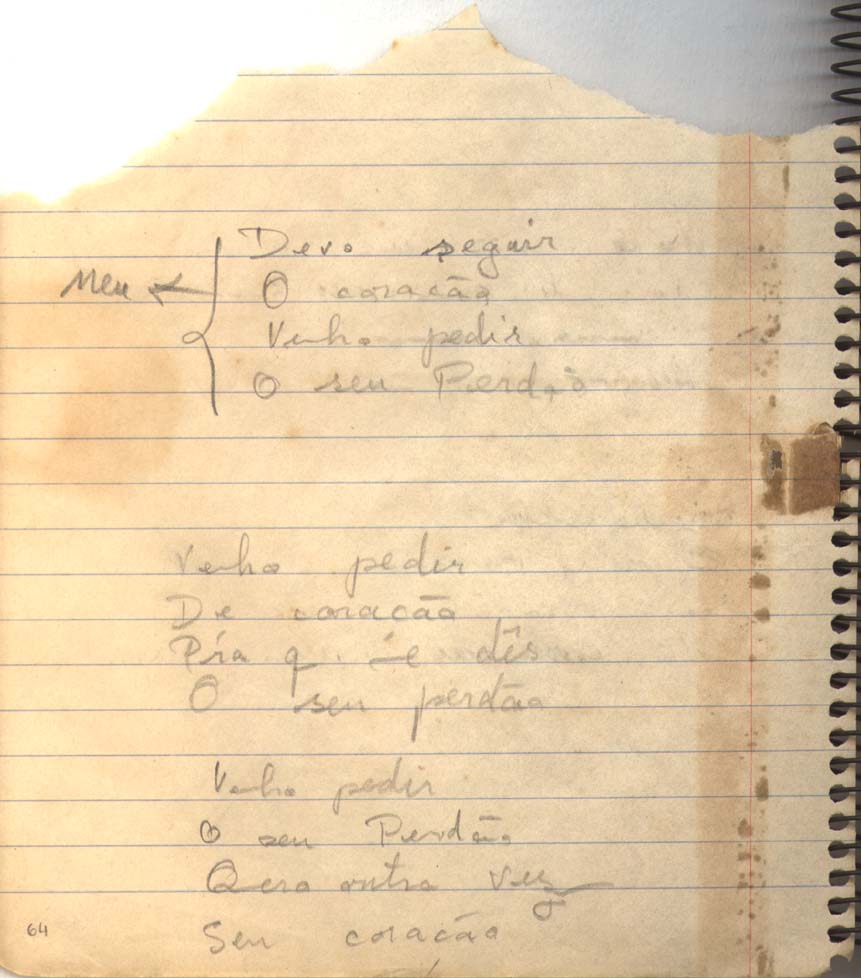 Devo seguir
Meu
O coracão
Venho pedir
O seu Perdão
Venho pedir
De coracão
Pra q. me dês
O seu perdão
Venho pedir
O seu Perdão
Quero outra vez
Seu coracão
64